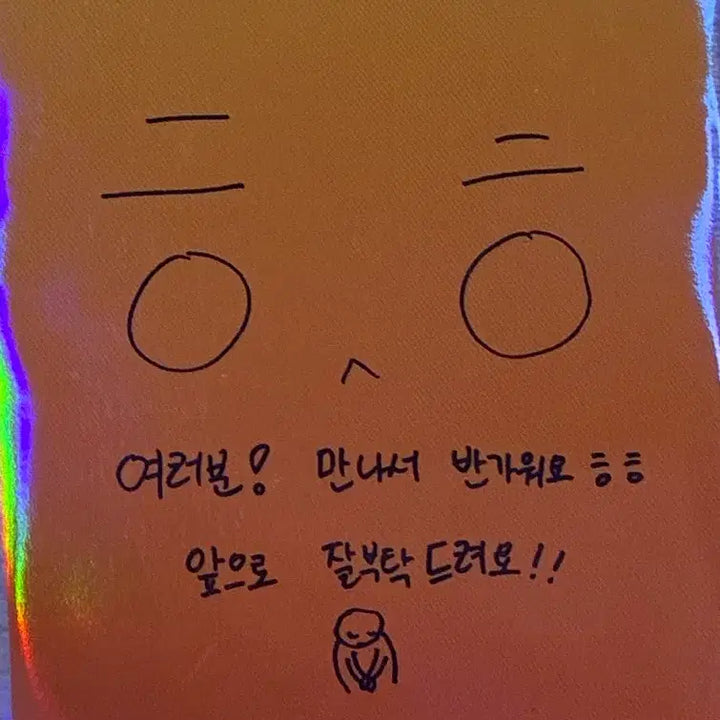 흐 흐
여러분! 만나서 반가워요 흐흐
앞으로 잘부탁드려요!!